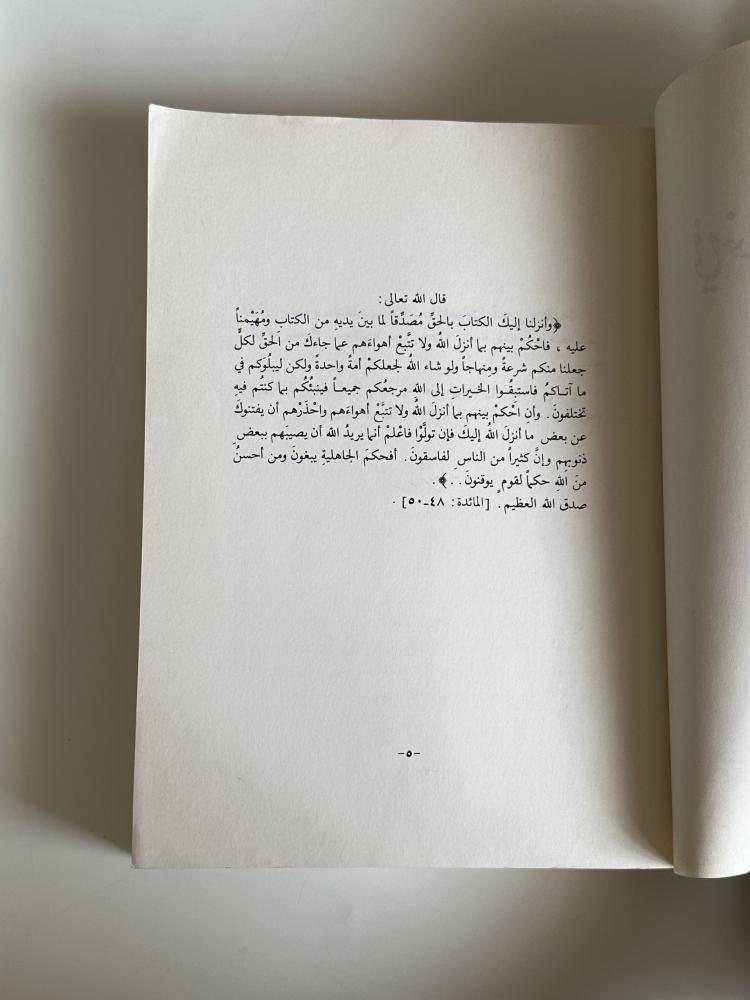 قال الله تعالى:
﴿وأنزلنا إليكَ الكتابَ بالحقِّ مُصَدِّقاً لما بينَ يديهِ من الكتابِ ومُهَيْمناً
عليه ، فاحْكُمْ بينهم بما أنزلَ اللهُ ولا تتَّبعْ أهواءَهم عما جاءكَ من الَحقِّ لكلٍّ
جعلنا منكم شرعةً ومنهاجاً ولو شاء اللهُ لجعلكمْ أمةً واحدةً ولكن ليبلُوَكم في
ما آتاكمُ فاستبقُوا الخيراتِ إلى اللهِ مرجعُكم جميعاً فينبئُكُم بما كنتُم فيهِ
تختلفونَ. وأنِ احْكمْ بينهم بما أنزلَ اللهُ ولا تتبَّعْ أهواءَهم واحْذَرْهم أن يفتنوكَ
عن بعضِ ما أنزلَ اللهُ إليكَ فإن تولَّوْا فاعْلمْ أنما يريدُ الله أن يصيبَهم ببعضِ
ذنوبهِم وإنَّ كثيراً من الناسِ لفاسقونَ. أفحكمَ الجاهليةِ يبغونَ ومن أحسنُ
منَ اللهِ حكماً لقومٍ يوقنونَ. .﴾.
صدق الله العظيم. [المائدة: ٤٨-٥٠] .
-٥-